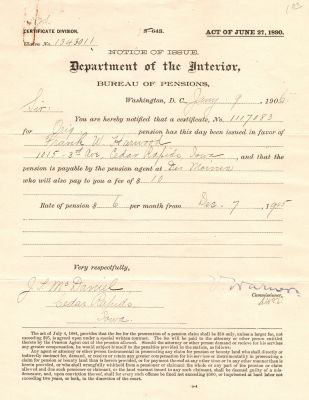 CERTIFICATE DIVISION.
3-643.
ACT OF JUNE 27, 1890.
Claim No. 1343011
NOTICE OF ISSUE.
Department of the Interior,
BUREAU OF PENSIONS,
Washington, D. C., Jany 9, 1906
Sir:
You are hereby notified that a certificate, No. 1117083
for Orig pension has this day been issued in favor of
Frank W. Harwood
1015-3d Ave, Cedar Rapids, Iowa, and that the
pension is payable by the pension agent at Des Moines
who will also pay to you a fee of $ 10
Rate of pension $ 6 per month from Dec. 7, 1905
Very respectfully,
J. L. McDaniel
Cedar Rapids
Iowa.
Commissioner.
The act of July 4, 1884, provides that the fee for the prosecution of a pension claim shall be $10 only, unless a larger fee, not
exceeding $25, is agreed upon under a special written contract. The fee will be paid to the attorney or other person entitled
thereto by the Pension Agent out of the pension allowed. Should the attorney or other person demand or receive for his services
any greater compensation, he would subject himself to the penalties provided in the statute, as follows:
Any agent or attorney or other person instrumental in prosecuting any claim for pension or bounty land who shall directly or
indirectly contract for, demand, or receive or retain any greater compensation for his services or instrumentality in prosecuting a
claim for pension or bounty land than is herein provided, or for payment thereof at any other time or in any other manner than is
herein provided, or who shall wrongfully withhold from a pensioner or claimant the whole or any part of the pension or claim
allowed and due such pensioner or claimant, or the land warrant issued to any such claimant, shall be deemed guilty of a mis-
demeanor, and, upon conviction thereof, shall for every such offense be fined not exceeding $500, or imprisoned at hard labor not
exceeding two years, or both, in the discretion of the court.